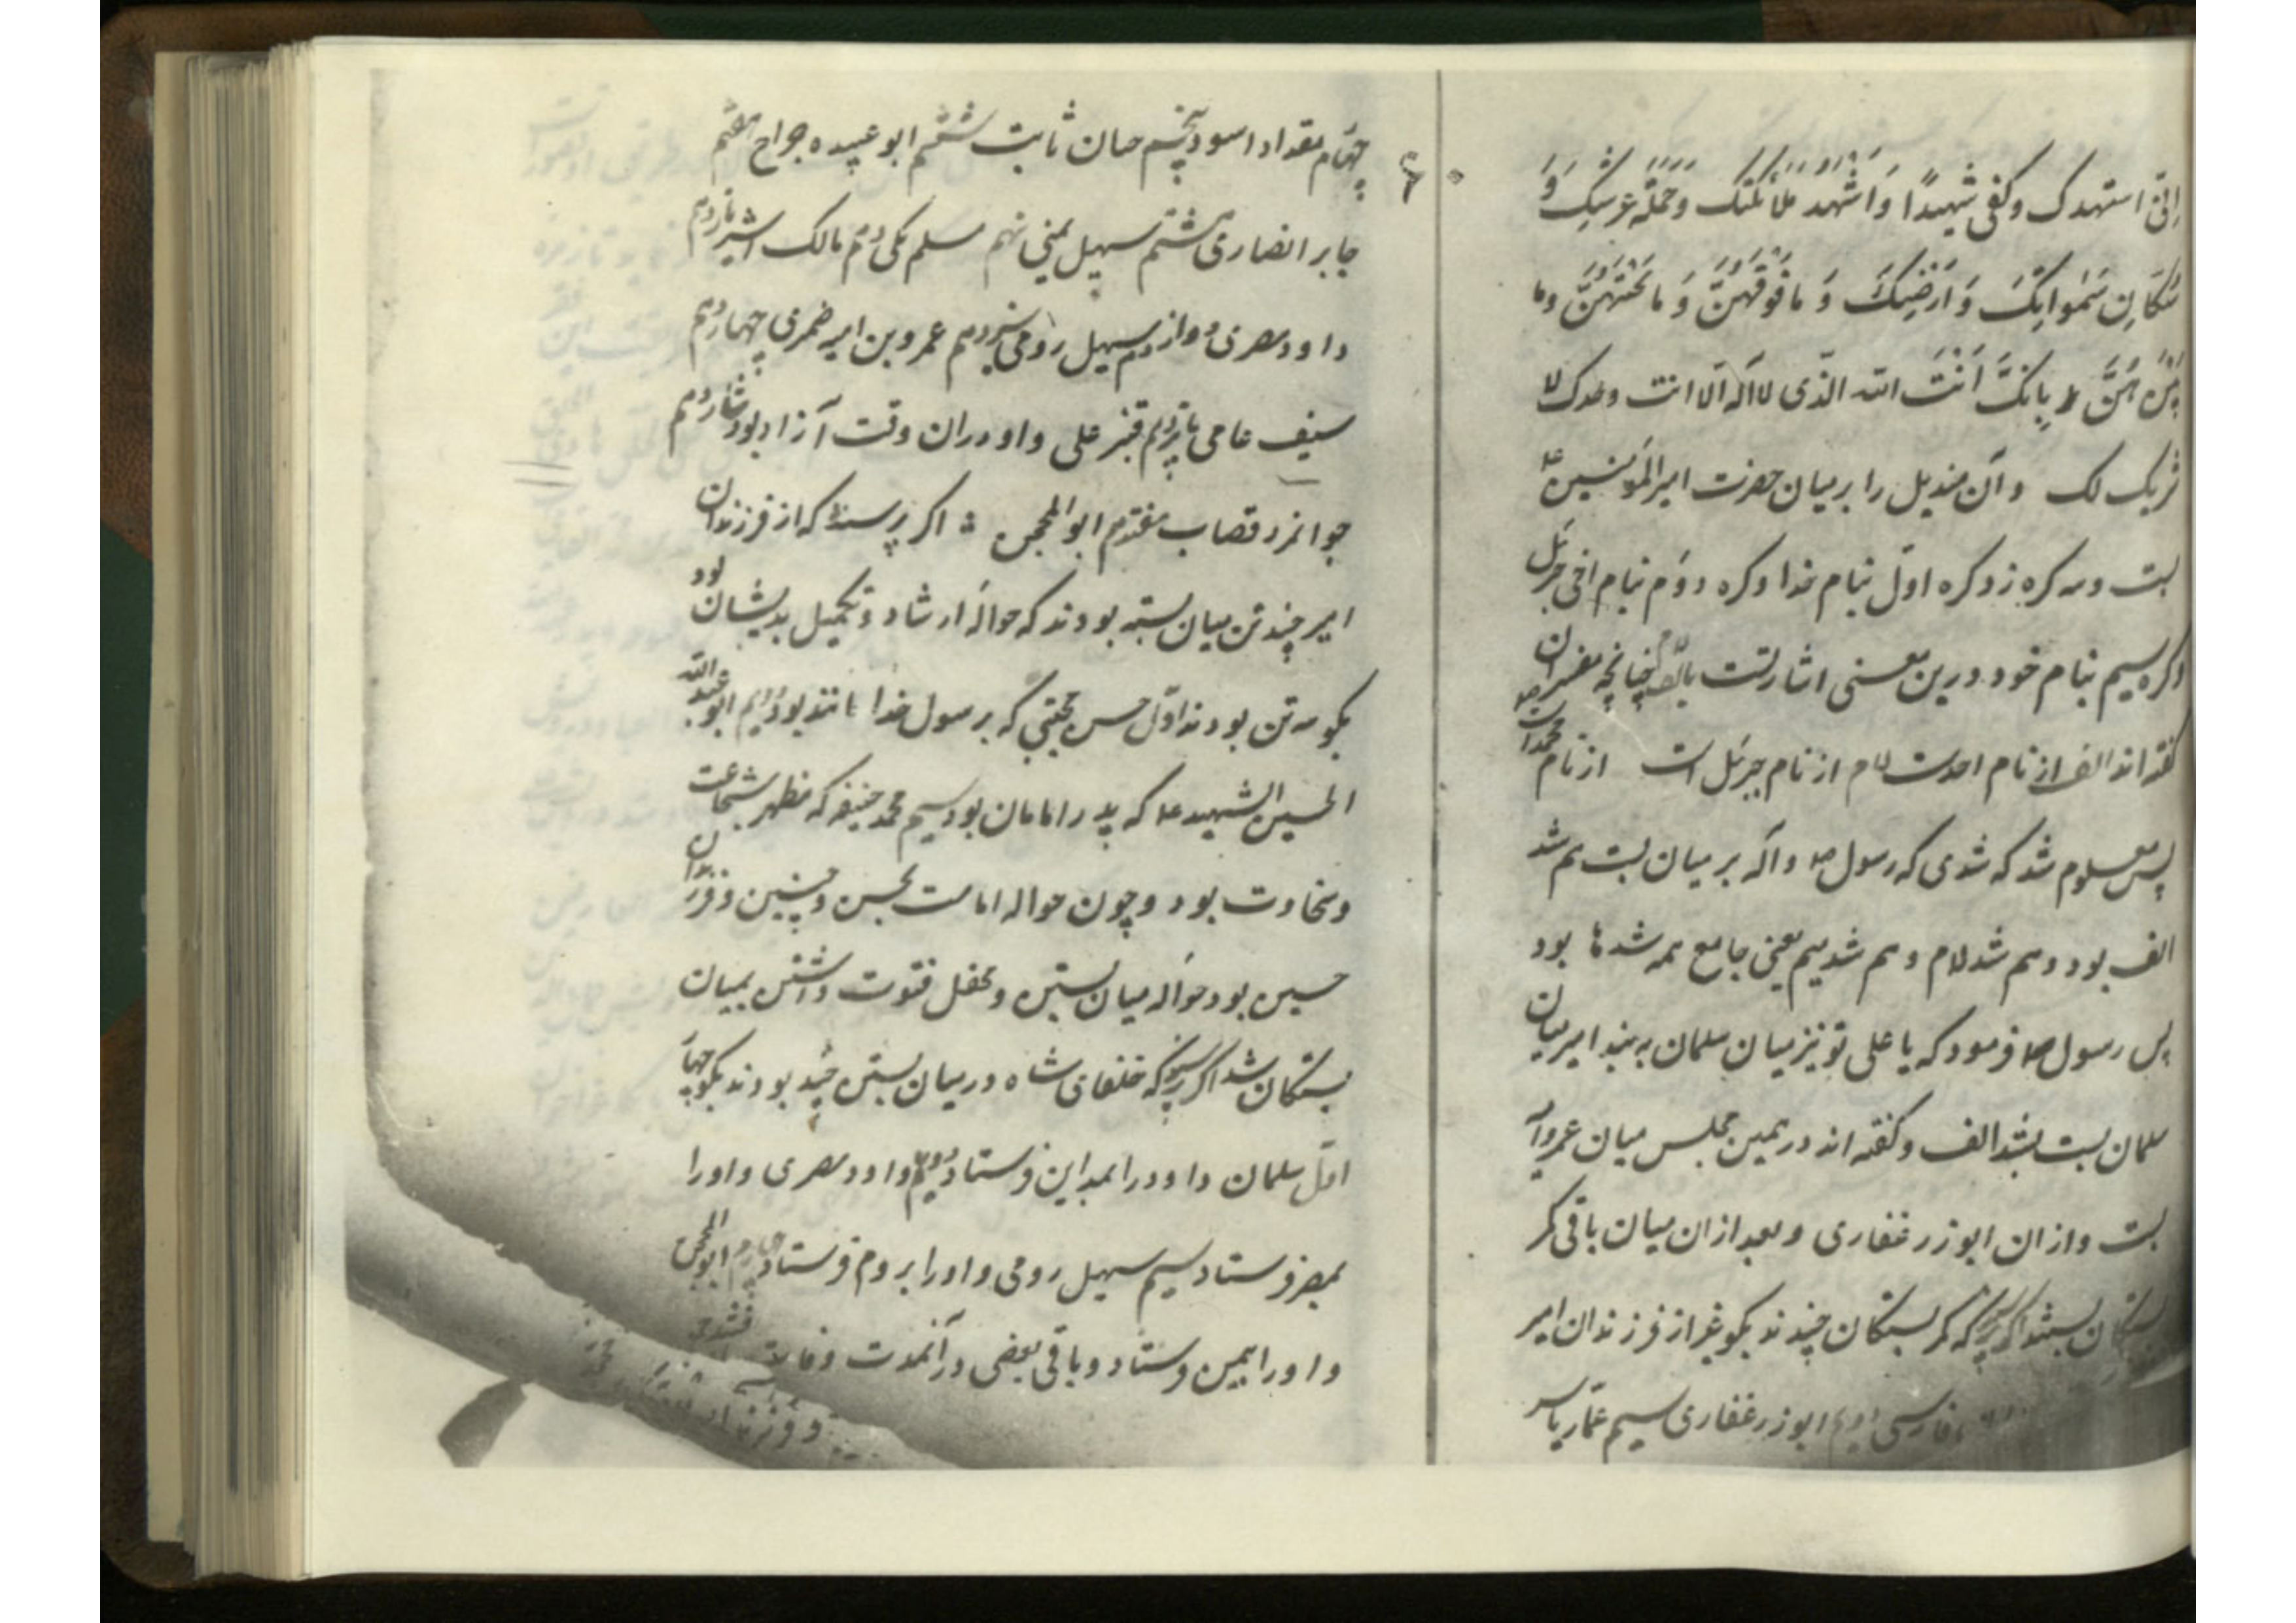 اِنّی استهدک وکفی شهیدًا وَاَشْهَدُ ملائکتک وَحَمَلَةَ عرشِکَ وَ
سُکّانِ سَمٰوایِکَ وَ اَرَضیِکَ وَ مافَوْقَهُنَّ وَ ما تَحْتَهُنَّ وما
بِاَنَّکَ اَنْتَ الله الّذی لا اله الّا انت وحدک لا
شریک لک وآن مندیل را بر میان حضرت امیرالمؤمنین ع
بست وسه کره زد کره اوّل بنام خدا وکره دوّم بنام اخی جبرئیل
وکره سیم بنام خود درین معنی اشارتست چنانچه مفسران
گفته اند الف از نام احدست لام از نام جبرئیل است از نام محمد است
پس معلوم شد که شدی که رسول ص واله بر میان بست هم شد
الف بود وهم شد لام وهم شد میم یعنی جامع همه شدها بود
پس رسول ص فرمود که یا علی تو نیز میان سلمان به بند امیر میان
سلمان بست بشد الف وگفته اند در همین مجلس میان عمرو را
بست وازان ابوذر غفاری وبعد ازان میان باقی کمر
بستکان ببست اکر پرسند که کمر بستکان چندند بکو غیر از فرزندان امیر
فارسی دویم ابوذر غفاری سیم عمّار یاسر
چهارم مقداد اسود پنجم حسان ثابت ششم ابو عبیده جراح هفتم
جابر انصاری هشتم سهیل یمنی نهم مسلم مکی دهم مالک اشتر یازدهم
داود مصری دوازدهم سهیل رومی سیزدهم عمرو بن امیه ضمری چهاردهم
سیف عامی پانزدهم قنبر علی واو دران وقت آزاد بود شانزدهم
جوانمرد قصاب هفتدهم ابوالمحجن اکر پرسند که از فرزندان
امیر چند تن میان بسته بودند که حوالهٔ ارشاد وتکمیل بدیشان بود
بکو سه تن بودند اوّل حسن مجتبی که برسول خدا مانند بود دویم ابو عبدالله
الحسین الشهید ع که پدر امامان بود سیم محمد حنیفه که مظهر شجاعت
وسخاوت بود وچون حواله امامت بحسن وحسین وفرزندان
حسین بود حواله میان بستن ومحفل فتوت داشتن بمیان
بستکان شد اکر پرسند که خلفای شاه در میان بستن چند بودند بکو چهار
اول سلمان داود را بمداین فرستاد دویم داود مصری واورا
بمصر فرستاد سیم سهیل رومی واورا بروم فرستاد چهارم ابوالمحجن
واورا بیمن فرستاد وباقی بعضی در آنمدت وفات